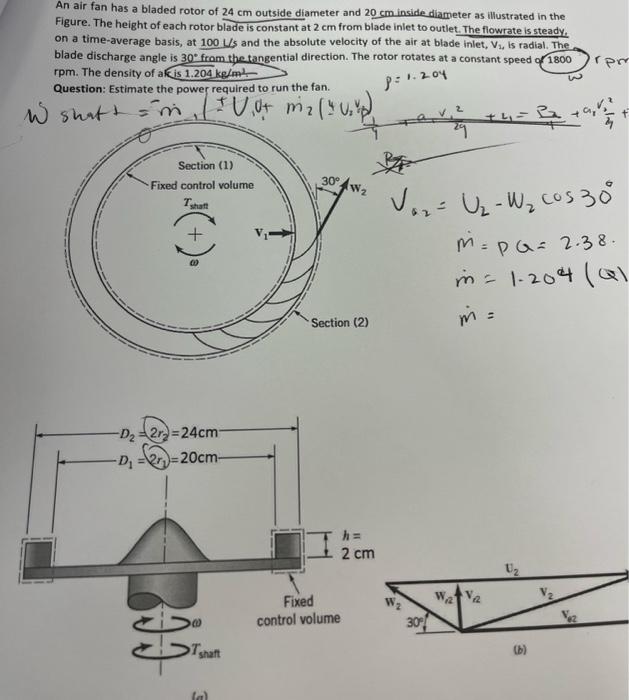 An air fan has a bladed rotor of 24 cm outside diameter and 20 cm inside diameter as illustrated in the
Figure. The height of each rotor blade is constant at 2 cm from blade inlet to outlet. The flowrate is steady,
on a time-average basis, at 100 L/s and the absolute velocity of the air at blade inlet, V₁, is radial. The
blade discharge angle is 30° from the tangential direction. The rotor rotates at a constant speed of 1800 rpm
rpm. The density of air is 1.204 kg/m³. ω
Question: Estimate the power required to run the fan. ρ = 1.204
Ẇ shaft = -ṁ₁(± U₁V₁) + ṁ₂(± U₂V₂)
Section (1)
Fixed control volume
T shaft
+
ω
V₁
30°
W₂
Section (2)
V₀₂ = U₂ - W₂ cos 30°
ṁ = ρQ = 2.38.
ṁ = 1.204 (Q)
ṁ =
D₂ = 2r₂ = 24cm
D₁ = 2r₁ = 20cm
h =
2 cm
Fixed
control volume
ω
T shaft
(a)
U₂
W₂
W r2
V r2
V₂
V θ2
30°
(b)